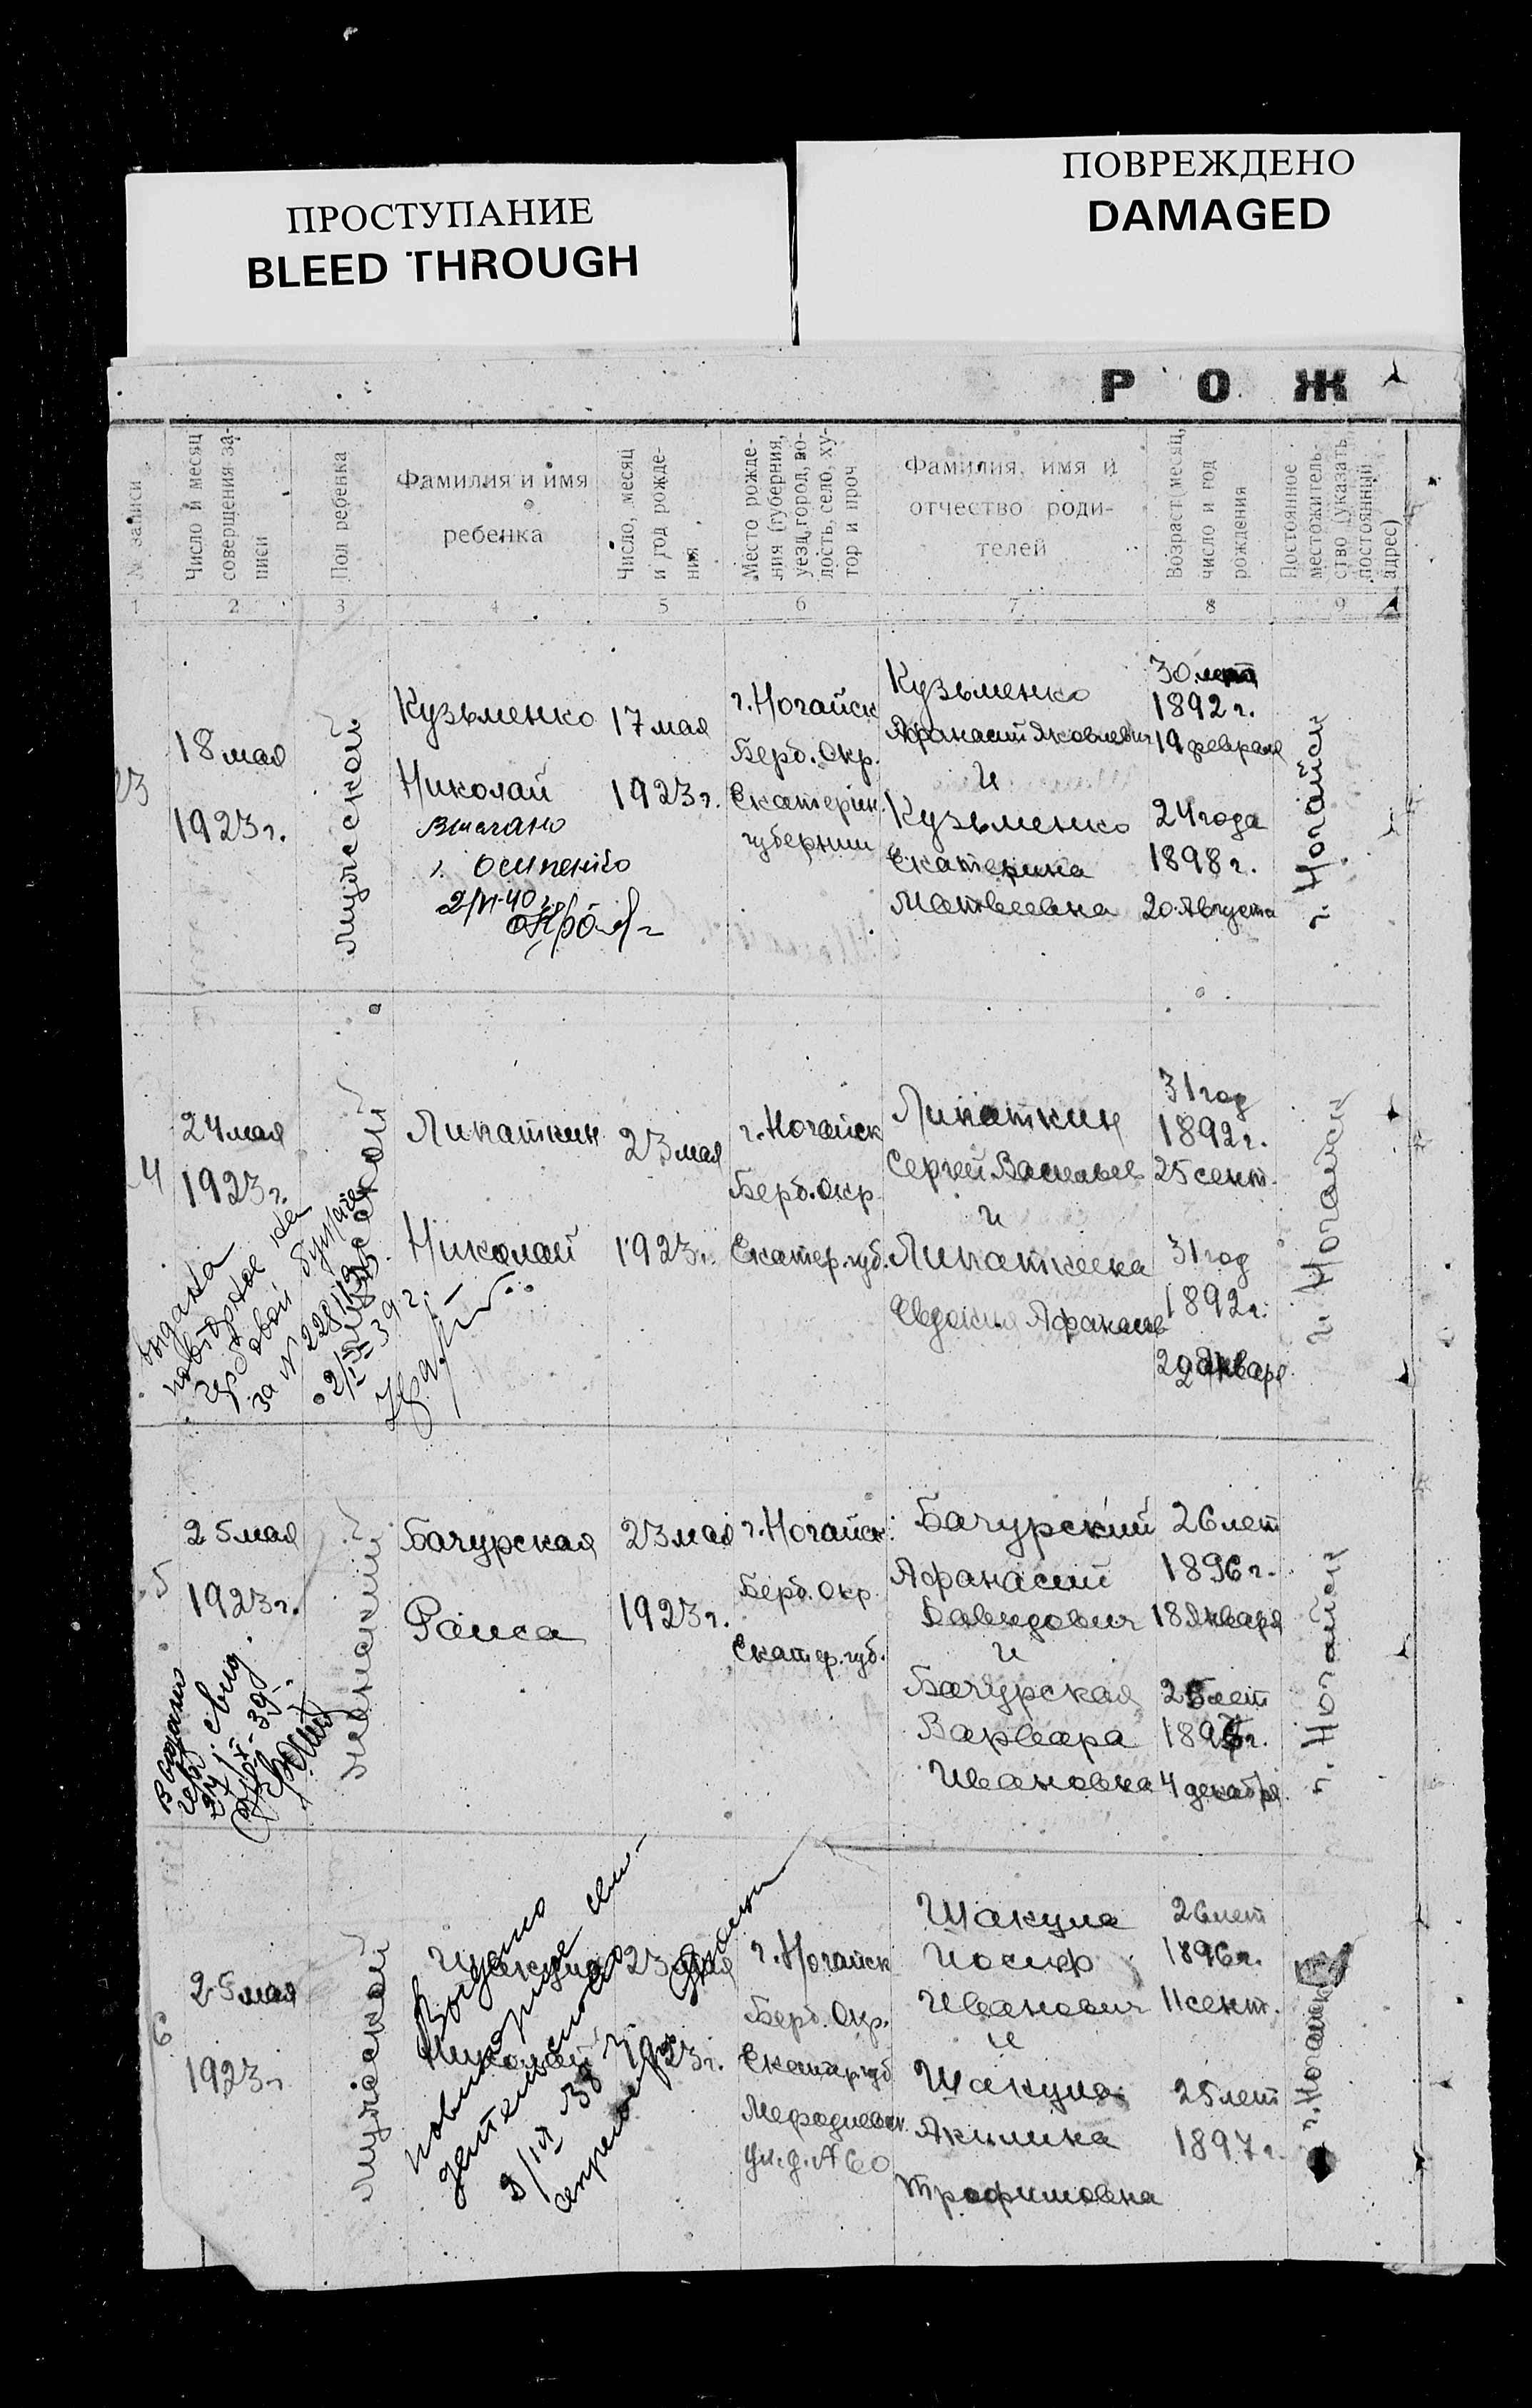 ПРОСТУПАНИЕ
BLEED THROUGH
ПОВРЕЖДЕНО
DAMAGED
Р О Ж
№ записи
Число и месяц
совершения за-
писи
Пол ребенка
Фамилия и имя
ребенка
Число, месяц
и год рожде-
ния
Место рожде-
ния (губерния,
уезд, город, во-
лость, село, ху-
тор и проч
Фамилия, имя и
отчество роди-
телей
Возраст (месяц,
число и год
рождения
Постоянное
местожитель-
ство (указать
постоянный
адрес)
1 2 3 4 5 6 7 8 9
23
18 мая
1923 г.
мужеской
Кузьменко
Николай
г. Осипенко
2/VI-40 г.
17 мая
1923 г.
г. Ногайск
Берд. Окр.
Екатерин.
губернии
Кузьменко
Афанасий Яковлевич
и
Кузьменко
Екатерина
Матвеевна
30 лет
1892 г.
19 февраля
24 года
1898 г.
20 Августа
г. Ногайск
4
24 мая
1923 г.
выдана
повторное
за N
мужеской
Липаткин
Николай
23 мая
1923 г.
г. Ногайск
Берд. окр.
Екатер. губ.
Липаткин
Сергей Васильев
и
Липаткина
Евдокия Афанасьев
31 год
1892 г.
25 сент.
31 год
1892 г.
Января
г. Ногайск
5
25 мая
1923 г.
Выдано
свид.
женский
Бачурская
Раиса
23 мая
1923 г.
г. Ногайск
Берд. Окр.
Екатер. губ.
Бачурский
Афанасий
Давидович
и
Бачурская
Варвара
Ивановна
26 лет
1896 г.
18 Января
лет
4 декабря
г. Ногайск
6
25 мая
1923 г.
мужеской
Шакула
Николай
Выдано
повторное сви-
детельство
23 мая
1923 г.
г. Ногайск
Берд. Окр.
Екатер. губ
Мефодиевск.
ул. д. № 60
Шакула
Иосиф
Иванович
и
Шакула
Акилина
Трофимовна
26 лет
1896 г.
11 сент.
25 лет
1897 г.
г. Ногайск